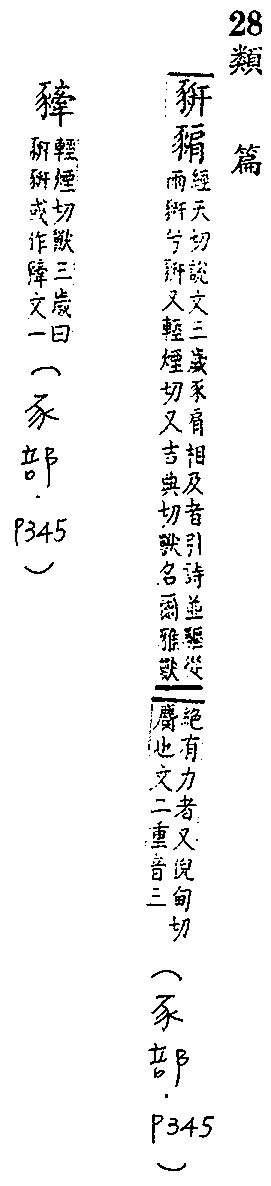 28 類 篇
豜
經天切說文三歲豕肩相及者引詩並驅從
兩豜兮豜又輕煙切又吉典切獸名爾雅獸
絕有力者又倪甸切
也文二重音三
(豕部.P345)
輕煙切獸三歲曰
豜豜或作文一
(豕部.P345)